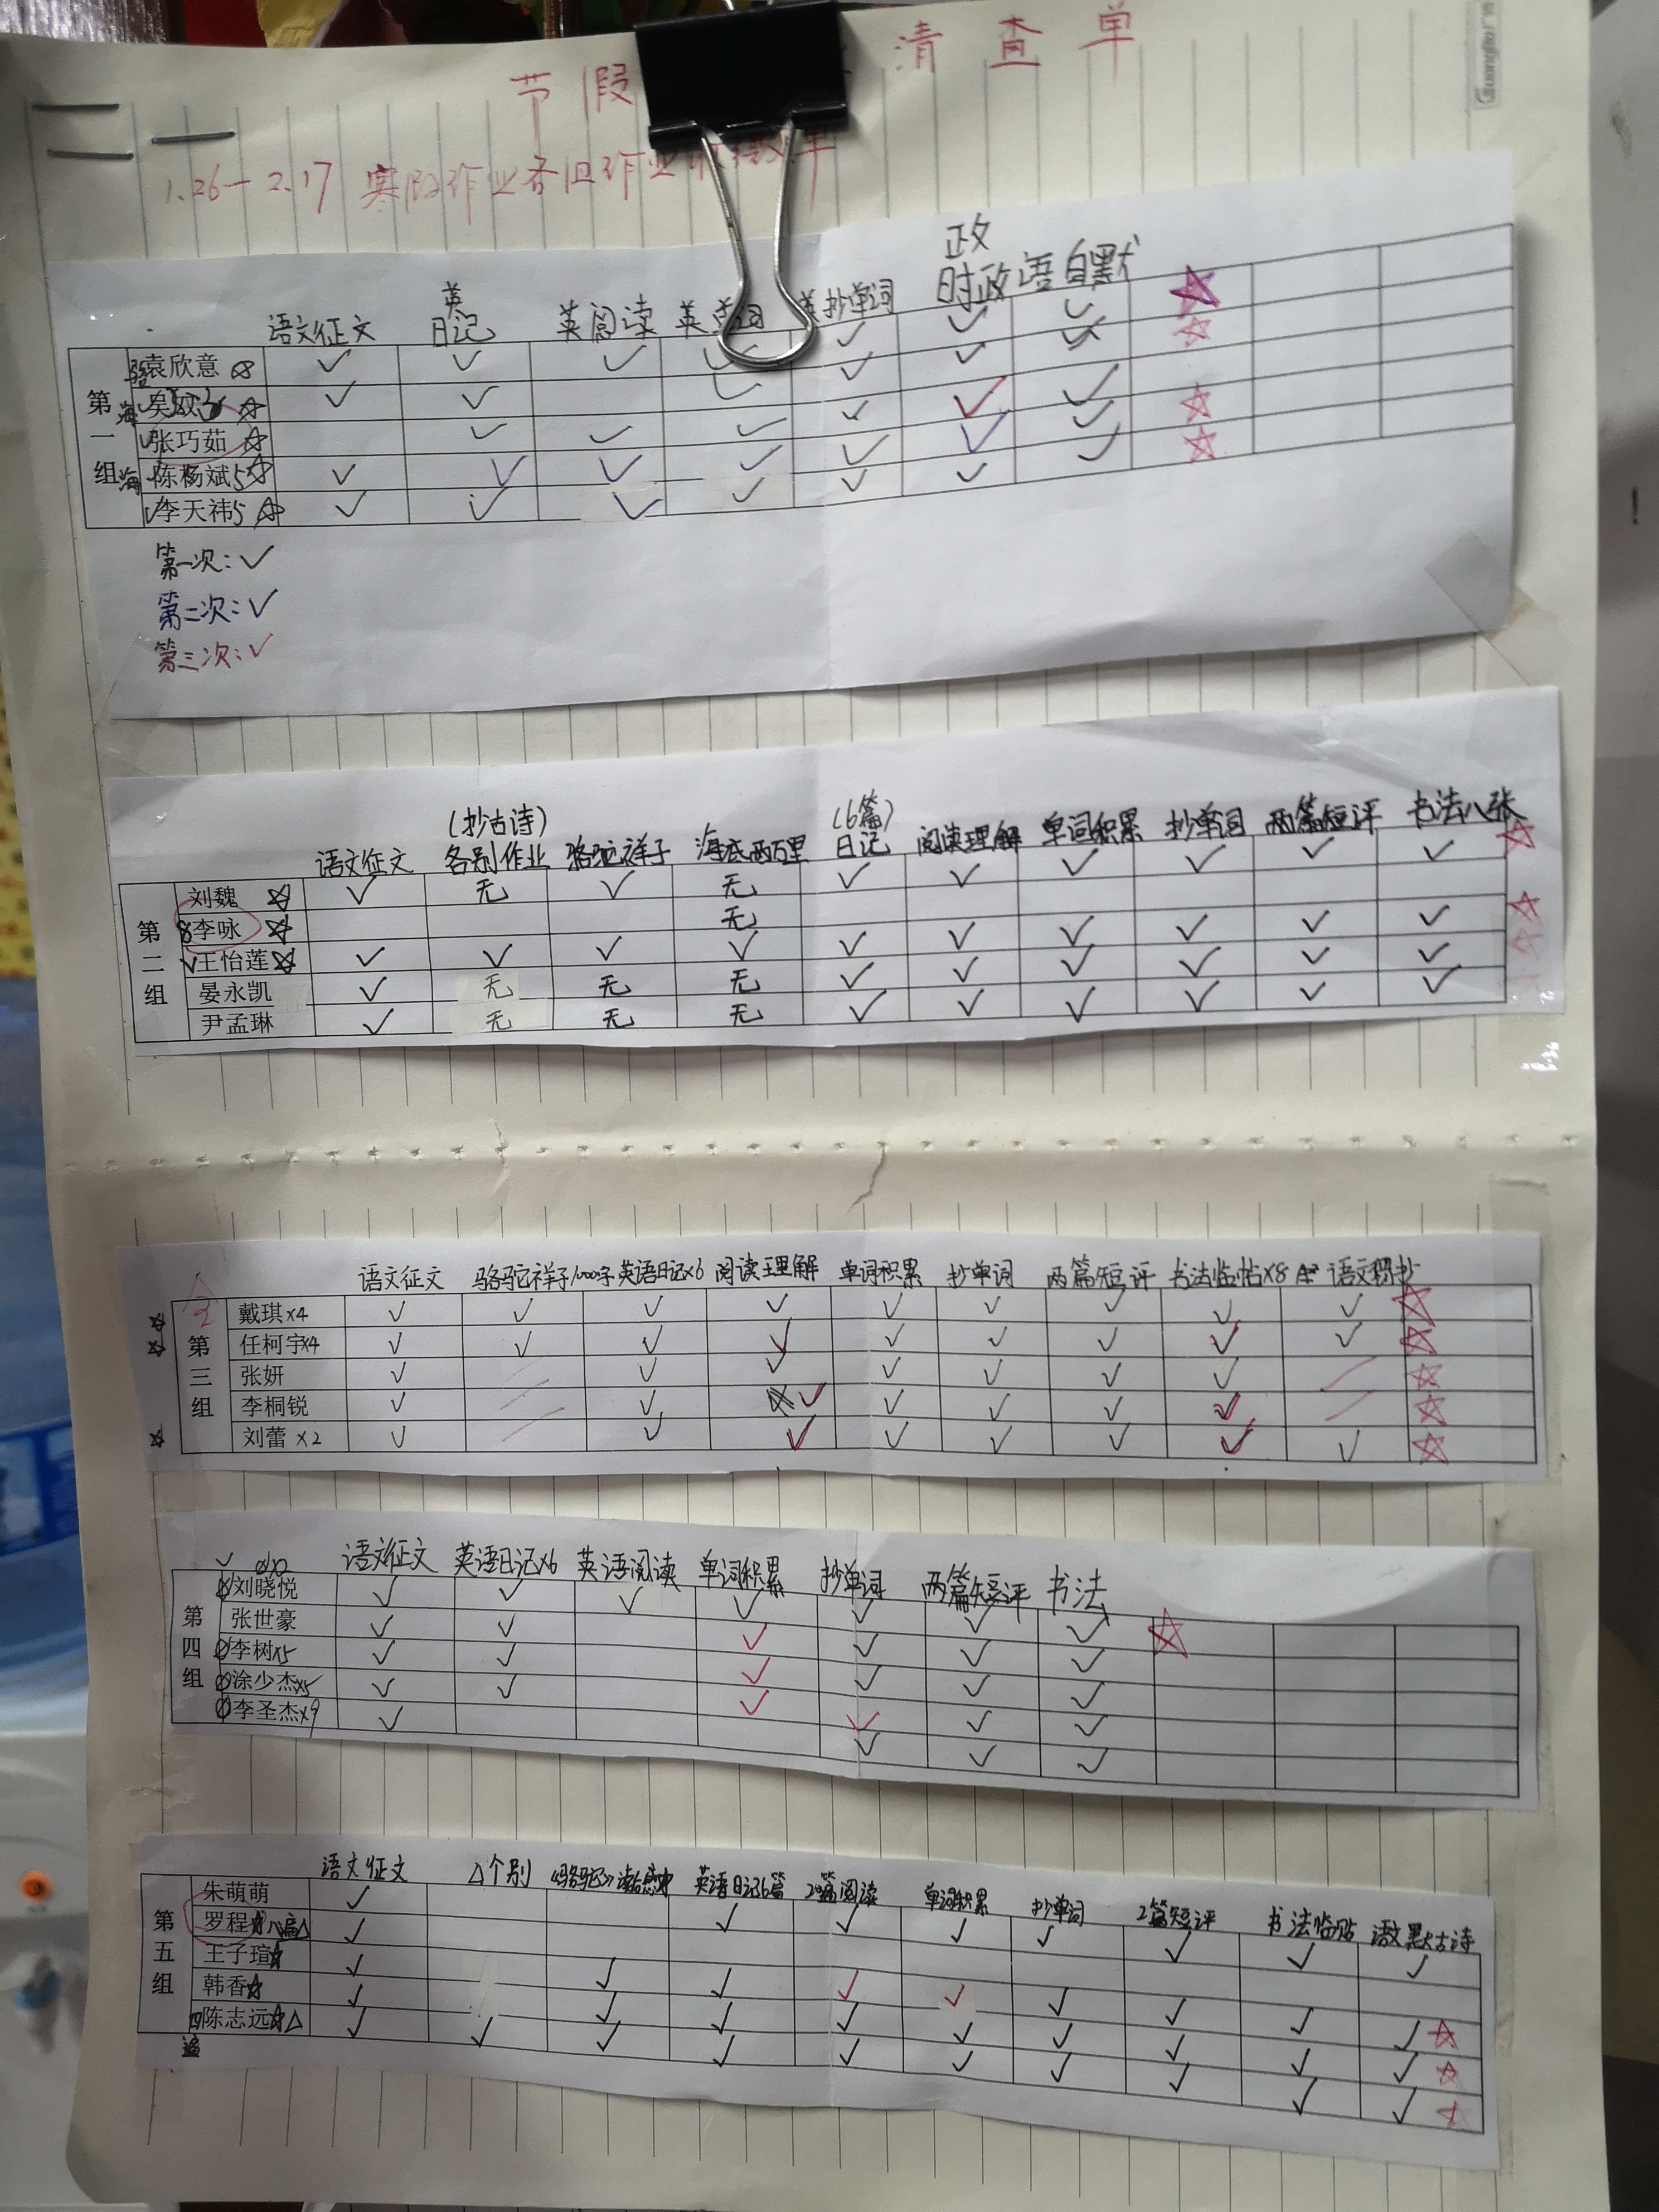 节 假 清 查 单
1.26—2.17 寒假作业各组作业收缴单
Guangbo 广博
政
英
语文征文 日记 英阅读 英单词 英抄单词 时政 语自默
第一组
袁欣意 ☆ ✓ ✓ ✓ ✓ ✓ ✓ ✓ ☆
☆ ✓ ✓ ✓ ✓ ✓ ✓ ☆
张巧茹 ☆ ✓ ✓ ✓ ✓ ✓ ✓
陈杨斌5☆ ✓ ✓ ✓ ✓ ✓ ✓ ✓ ☆
李天祎5☆ ✓ ✓ ✓ ✓ ✓ ✓ ✓ ☆
第一次：✓
第二次：✓
第三次：✓
(抄古诗) (6篇)
语文征文 各别作业 骆驼祥子 海底两万里 日记 阅读理解 单词积累 抄单词 两篇短评 书法八张
第二组
刘魏 ☆ ✓ 无 ✓ 无 ✓ ✓ ✓ ✓ ✓ ✓ ☆
8李咏 ☆ 无
✓王怡莲☆ ✓ ✓ ✓ ✓ ✓ ✓ ✓ ✓ ✓ ✓ ☆
晏永凯 ✓ 无 无 无 ✓ ✓ ✓ ✓ ✓ ✓ ☆
尹孟琳 ✓ 无 无 无 ✓ ✓ ✓ ✓ ✓ ✓
语文征文 骆驼祥子1000字 英语日记×6 阅读理解 单词积累 抄单词 两篇短评 书法临帖×8 语文积抄
第三组
☆ 戴琪×4 ✓ ✓ ✓ ✓ ✓ ✓ ✓ ✓ ✓ ☆
☆ 任柯宇×4 ✓ ✓ ✓ ✓ ✓ ✓ ✓ ✓ ✓ ☆
张妍 ✓ ／ ✓ ✓ ✓ ✓ ✓ ✓ ／ ☆
李桐锐 ✓ ／ ✓ ✓ ✓ ✓ ✓ ✓ ／ ☆
☆ 刘蕾 ×2 ✓ ／ ✓ ✓ ✓ ✓ ✓ ✓ ✓ ☆
语文征文 英语日记×6 英语阅读 单词积累 抄单词 两篇短评 书法
第四组
刘晓悦 ✓ ✓ ✓ ✓ ✓ ✓ ✓ ☆
张世豪 ✓ ✓ ✓ ✓ ✓ ✓
李树×5 ✓ ✓ ✓ ✓ ✓ ✓
涂少杰×5 ✓ ✓ ✓ ✓ ✓ ✓
李圣杰×9 ✓ ✓ ✓ ✓
语文征文 △个别 《骆驼》读后感 英语日记6篇 阅读 单词积累 抄单词 2篇短评 书法临贴 语文默古诗
第五组
朱萌萌 ✓ ✓ ✓ ✓ ✓ ✓ ✓ ✓
罗程☆ ✓
王子瑄☆ ✓ ✓ ✓ ✓ ✓ ✓ ✓ ✓ ✓ ☆
韩香☆ ✓ ✓ ✓ ✓ ✓ ✓ ✓ ✓ ✓ ☆
陈志远☆△ ✓ ✓ ✓ ✓ ✓ ✓ ✓ ✓ ✓ ✓ ☆